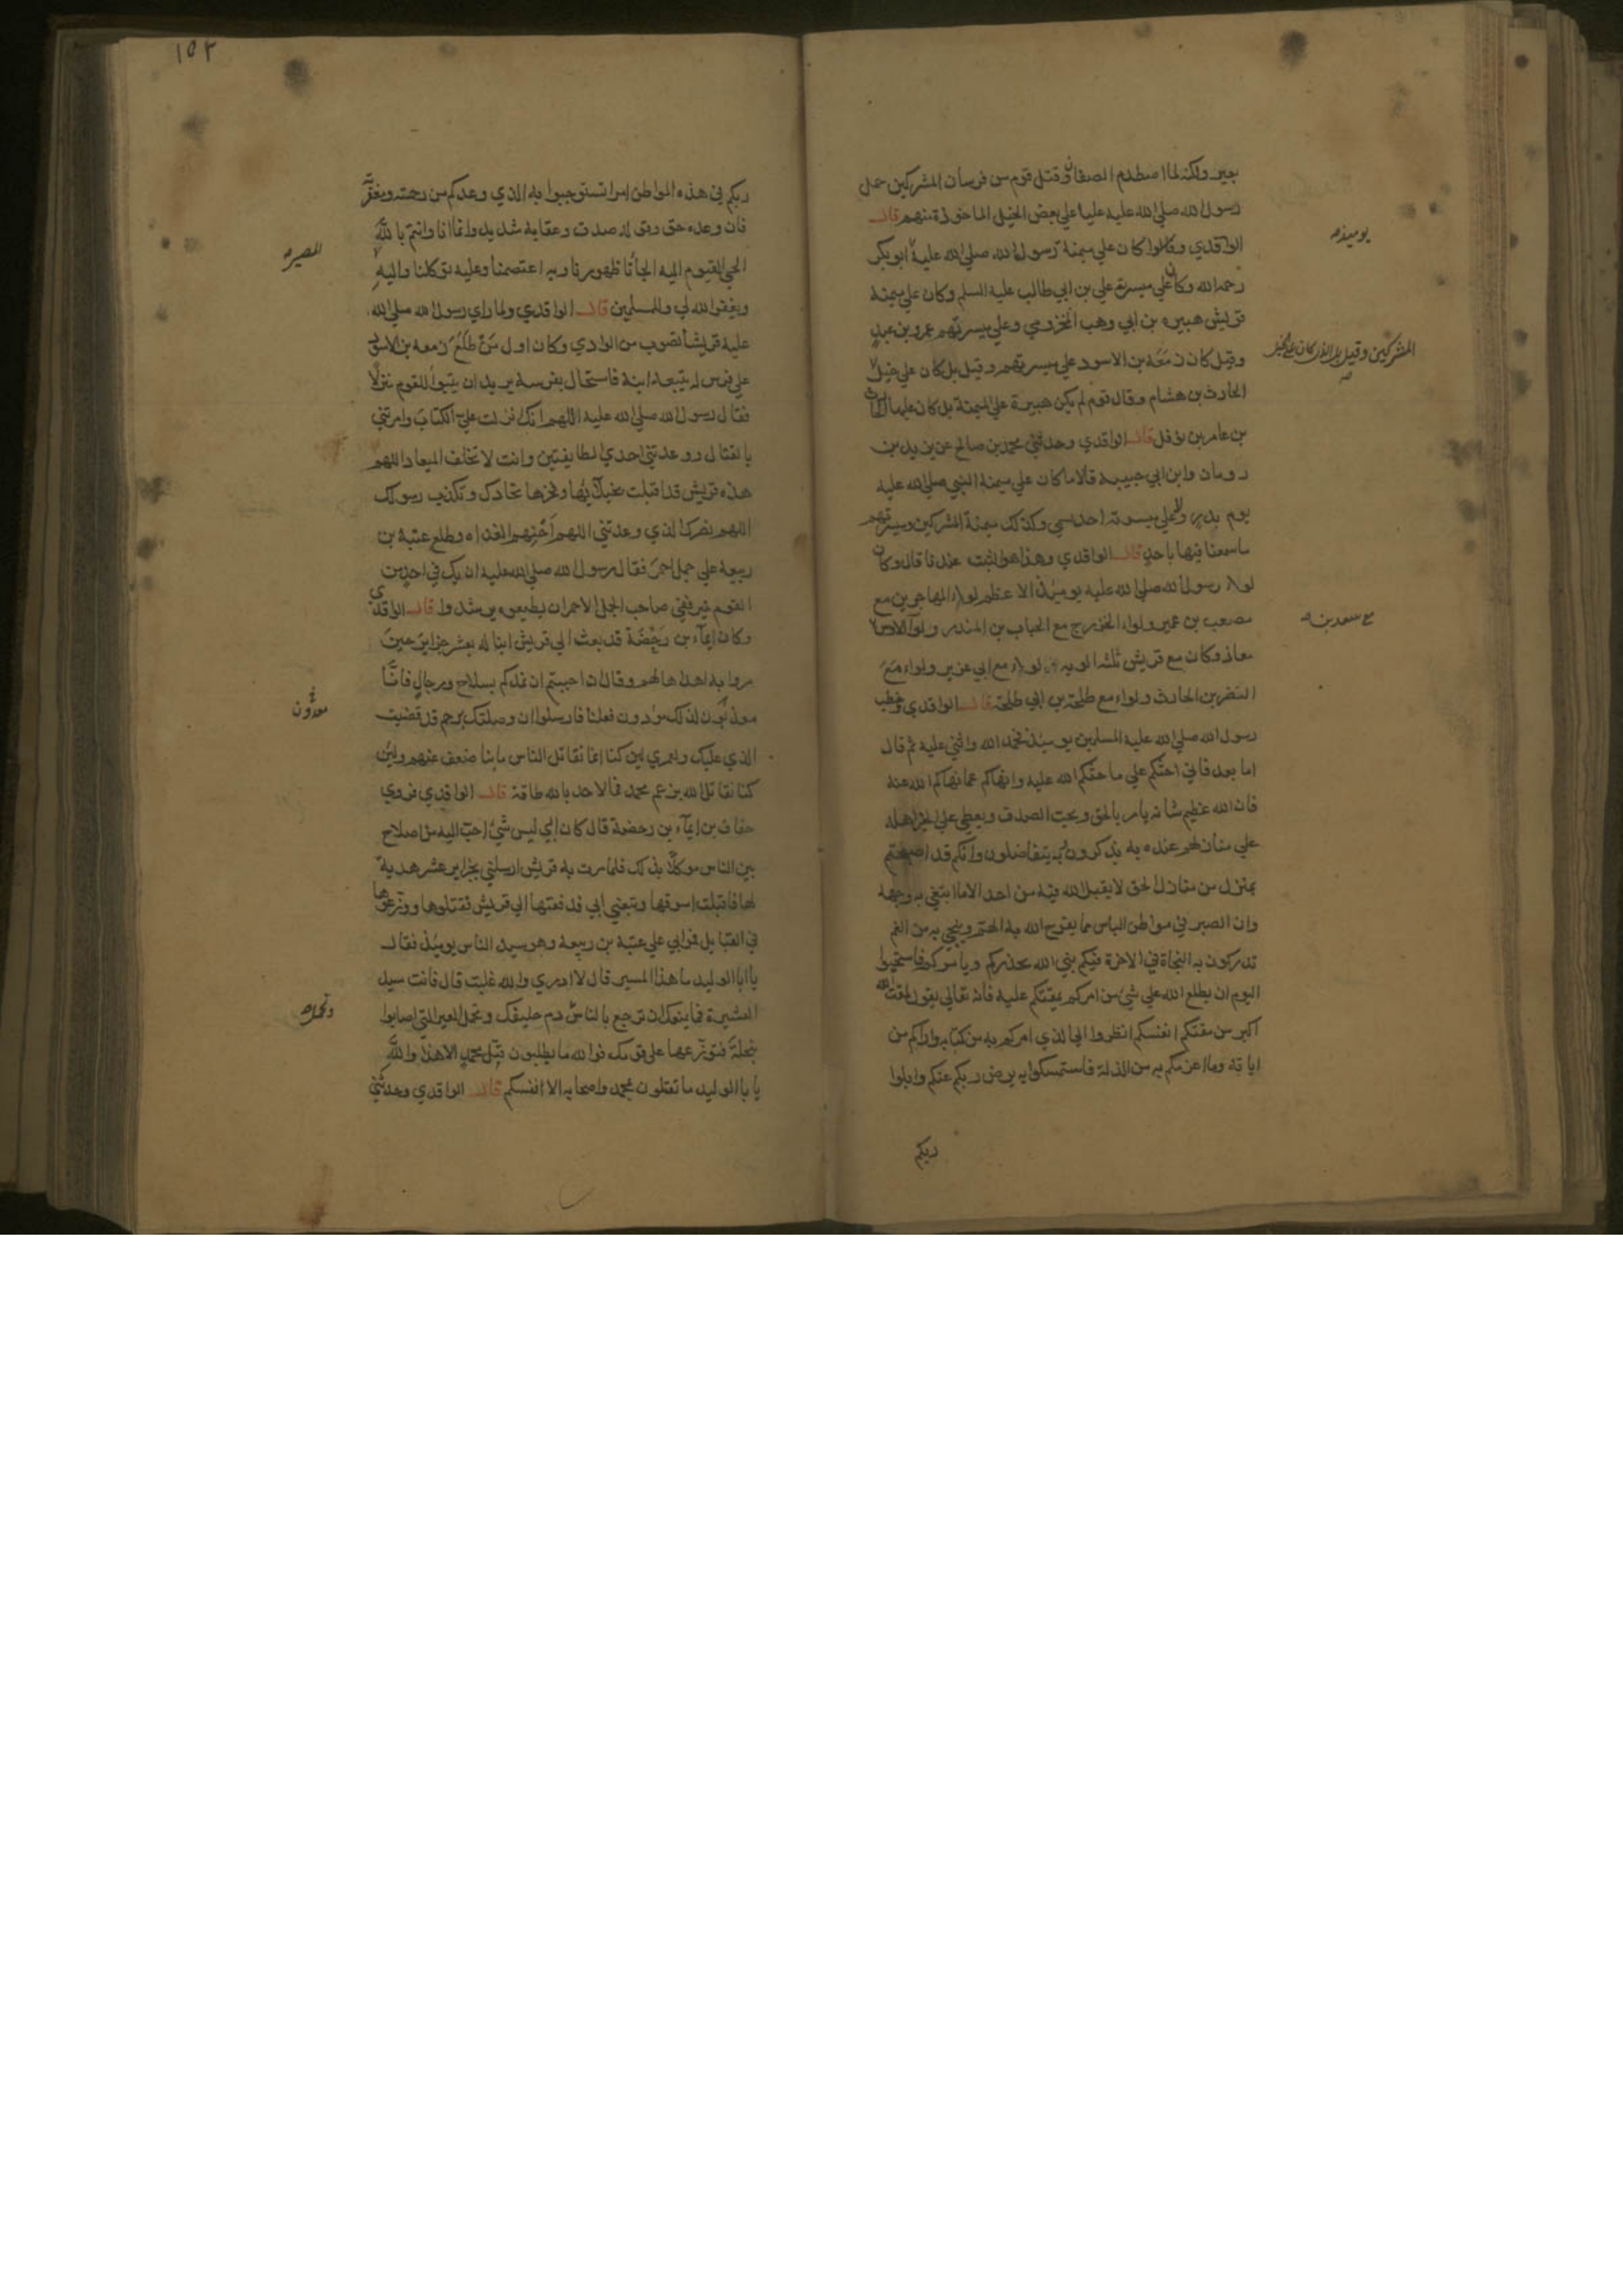 بعير ولكنه لما اصطدم الصفان وقتل قوم من فرسان المشركين حمل
رسول الله صلى الله عليه عليا على بعض الخيل الماخوذة منهم قال
الواقدي وقالوا كان على ميمنة رسول الله صلى الله عليه ابو بكر
يوميذ
رحمه الله وكان على ميسرته علي بن ابي طالب عليه السلم وكان على ميمنة
قريش هبيرة بن ابي وهب المخزومي وعلى ميسرتهم عمرو بن عبد
وقيل كان زمعة بن الاسود على ميسرتهم وقيل بل كان على خيل
المشركين وقيل بل الذي كان على الخيل
الحارث بن هشام وقال قوم لم يكن هبيرة على الميمنة بل كان عليها الحارث
بن عامر بن نوفل قال الواقدي وحدثني محمد بن صالح عن يزيد بن
رومان وابن ابي حبيبة قالا ما كان على ميمنة النبي صلى الله عليه
يوم بدر ولا على ميسرته احد يسمى وكذلك ميمنة المشركين وميسرتهم
ما سمعنا فيها باحد قال الواقدي وهذا هو الثبت عندنا قال وكان
لواء رسول الله صلى الله عليه يوميذ الاعظم لواء المهاجرين مع
مصعب بن عمير ولواء الخزرج مع الحباب بن المنذر ولواء الاوس
مع سعد بن
معاذ وكان مع قريش ثلثة الوية لواء مع ابي عزير ولواء مع
النضر بن الحارث ولواء مع طلحة بن ابي طلحة قال الواقدي وخطب
رسول الله صلى الله عليه المسلمين يوميذ فحمد الله واثنى عليه ثم قال
اما بعد فاني احثكم على ما حثكم الله عليه وانهاكم عما نهاكم الله عنه
فان الله عظيم شانه يامر بالحق ويحب الصدق ويعطي على الخير اهله
على منازلهم عنده به يذكرون وبه يتفاضلون وانكم قد اصبحتم
بمنزل من منازل الحق لا يقبل الله فيه من احد الا ما ابتغي به وجهه
وان الصبر في مواطن الباس مما يفرج الله به الهم وينجي به من الغم
تدركون به النجاة في الاخرة فيكم نبي الله يحذركم ويامركم فاستحيوا
اليوم ان يطلع الله على شي من امركم يمقتكم عليه فانه تعالى يقول لمقت الله
اكبر من مقتكم انفسكم انظروا الى الذي امركم به من كتابه واراكم من
اياته وما اعزكم به من الذلة فاستمسكوا به يرض ربكم عنكم وابلوا
ربكم
١٥٢
ربكم في هذه المواطن امرا تستوجبوا به الذي وعدكم من رحمته ومغفرته
فان وعده حق وقوله صدق وعقابه شديد وانما انا وانتم بالله
الحي القيوم اليه الجأنا ظهورنا وبه اعتصمنا وعليه توكلنا واليه
المصير
ويغفر الله لي وللمسلمين قال الواقدي ولما راى رسول الله صلى الله
عليه قريشا تصوب من الوادي وكان اول من طلع زمعة بن الاسود
على فرس له يتبعه ابنه فاستحال بفرسه يريد ان يتبوا للقوم منزلا
فقال رسول الله صلى الله عليه اللهم انك انزلت علي الكتاب وامرتني
بالقتال ووعدتني احدى الطايفتين وانت لا تخلف الميعاد اللهم
هذه قريش قد اقبلت بخيلائها وفخرها تحادك وتكذب رسولك
اللهم نصرك الذي وعدتني اللهم احنهم الغداة وطلع عتبة بن
ربيعة على جمل احمر فقال رسول الله صلى الله عليه ان يك في احد من
القوم خير ففي صاحب الجمل الاحمر ان يطيعوه يرشدوا قال الواقدي
وكان ايماء بن رحضة قد بعث الى قريش ابنا له بعشر جزاير حين
مروا به اهداها لهم وقال ان احببتم ان نمدكم بسلاح ورجال فانا
معدون لذلك مؤدون فعلنا فارسلوا ان وصلتك رحم قد قضيت
معدون
الذي عليك ولعمري لين كنا انما نقاتل الناس ما بنا ضعف عنهم ولين
كنا نقاتل الله بزعم محمد فما لاحد بالله طاقة قال الواقدي فروى
خفاف بن ايماء بن رحضة قال كان ابي ليس شي احب اليه من اصلاح
بين الناس موكلا بذلك فلما مرت به قريش ارسلني بجزاير عشر هدية
لها فاقبلت اسوقها وتبعني ابي فدفعتها الى قريش فقبلوها ووزعوها
في القبايل فمر ابي على عتبة بن ربيعة وهو سيد الناس يوميذ فقال
يا ابا الوليد ما هذا المسير قال لا ادري والله غلبت قال فانت سيد
العشيرة فما يمنعك ان ترجع بالناس وتحمل دم حليفك وتحمل العير التي اصابوا
وتحمل
بنخلة فتوزعها على قومك فوالله ما يطلبون قبل محمد الا هذا والله
يا با الوليد ما تقتلون بمحمد واصحابه الا انفسكم قال الواقدي وحدثني